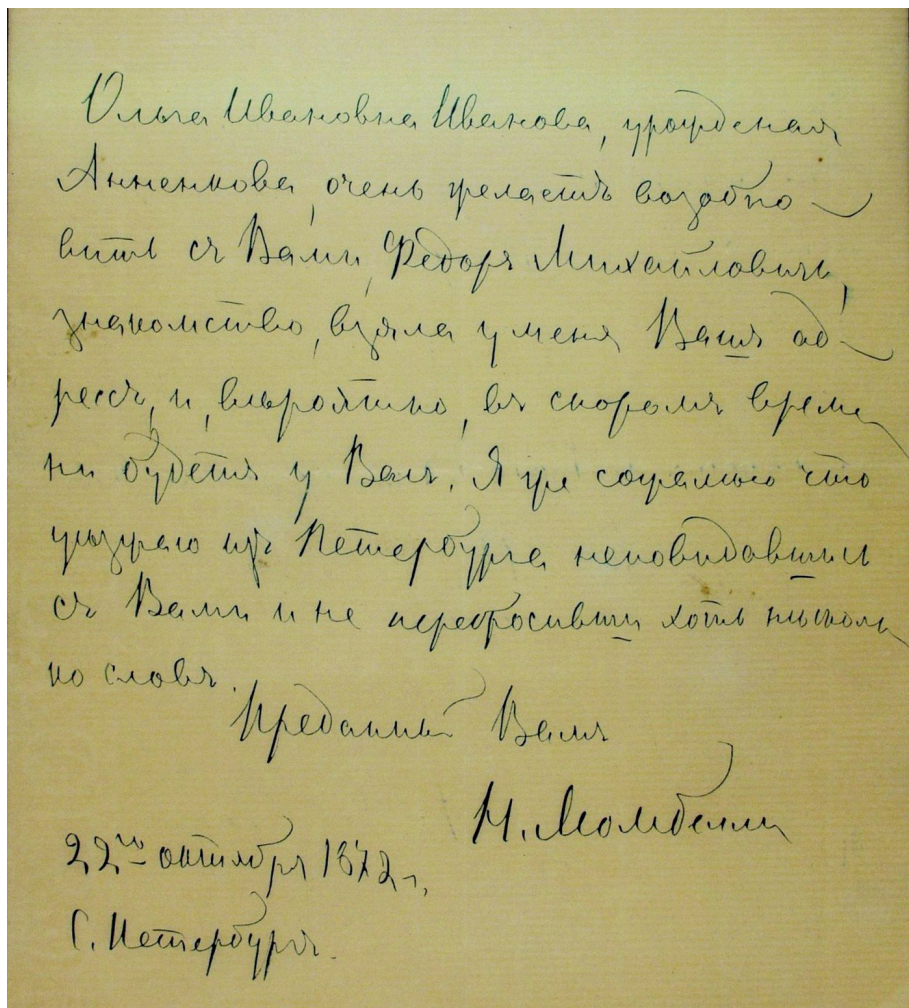 Ольга Ивановна Иванова, урожденная
Анненкова, очень желаетъ возобно-
вить съ Вами, Федоръ Михайловичъ,
знакомство, взяла у меня Вашъ ад-
рессъ, и, вѣроятно, въ скоромъ време-
ни будетъ у Васъ. Я же сожалѣю что
уѣзжаю изъ Петербурга неповидавшись
съ Вами и не перебросивши хоть нѣсколь-
ко словъ.
Преданный Вамъ
Н. Момбелли
22го октября 1872 г.
С. Петербургъ.